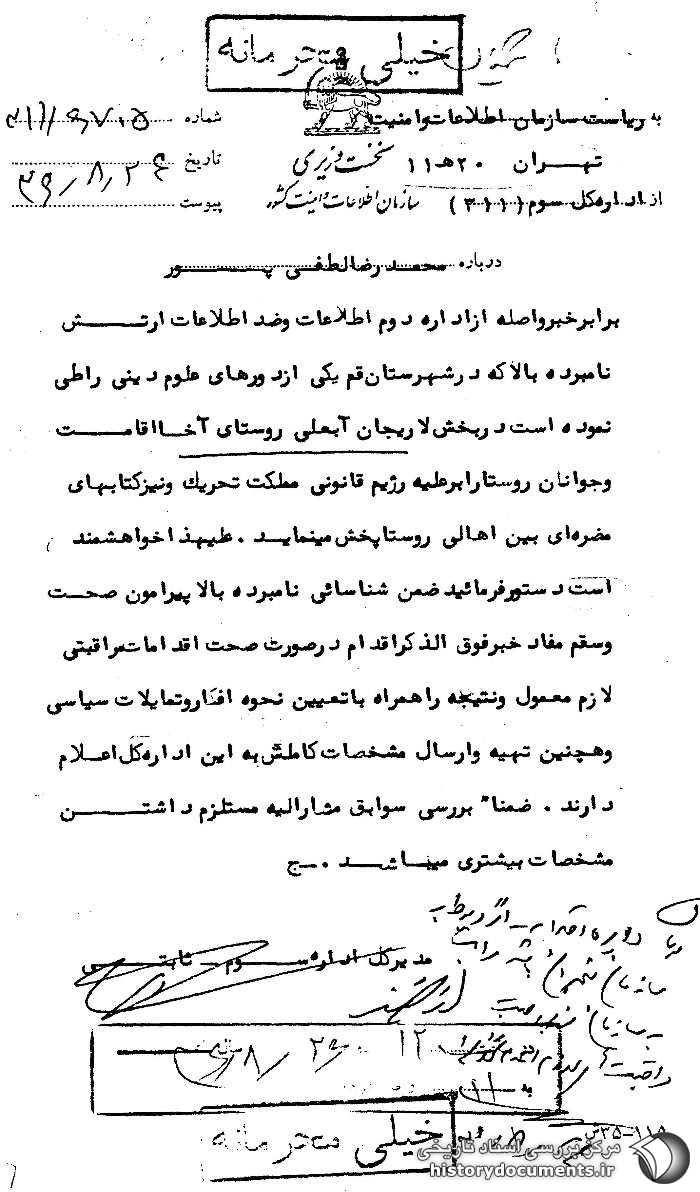 خیلی محرمانه
به ریاست سازمان اطلاعات وامنیت
شماره
تهران ۲۰هـ ۱۱
نخست وزیری
تاریخ ۳۹/۸/۲۴
از اداره کل سوم (۳۱۱)
سازمان اطلاعات وامنیت کشور
پیوست
درباره محمد رضا لطفی پور
برابرخبرواصله از اداره دوم اطلاعات وضد اطلاعات ارتش
نامبرده بالا که در شهرستان قم یکی از دورهای علوم دینی راطی
نموده است در بخش لاریجان آبعلی روستای آخا اقامت
وجوانان روستا رابرعلیه رژیم قانونی مملکت تحریك ونیزکتابهای
مضره‌ای بین اهالی روستا پخش مینماید . علیهذا خواهشمند
است دستورفرمائید ضمن شناسائی نامبرده بالا پیرامون صحت
وسقم مفاد خبرفوق الذکر اقدام درصورت صحت اقدامات مراقبتی
لازم معمول ونتیجه را همراه با تعیین نحوه افکار وتمایلات سیاسی
وهچنین تهیه وارسال مشخصات کاملش به این اداره کل اعلام
دارند . ضمنا" بررسی سوابق مشارالیه مستلزم داشتن
مشخصات بیشتری میباشد . ج
مدیرکل اداره سوم ـ ثابتی
خیلی محرمانه
۱۱۸-۳۵ش
مرکز بررسی اسناد تاریخی
historydocuments.ir